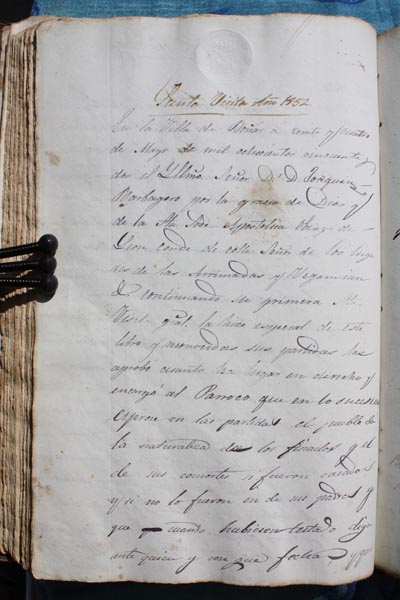 Santa Visita Año 1852
En la Villa de Boñar a veinte y cuatro
de Mayo de mil ochocientos cincuenta y
dos el Yllmo. Señor Dr. D. Joaquin
Barbagero por la gracia de Dios y
de la Sta. Sede Apostolica Obispo de
Leon conde de colle Señor de los luga
res de las Arrimadas y Vegamian
& continuando su primera Sta.
Visita gral. la hizo especial de este
libro y reconocidas sus partidas las
aprobó cuanto ha lugar en derecho y
encargó al Parroco que en lo sucesivo
esprese en las partidas el pueblo de
la naturaleza de los finados y el
de sus consortes si fueron casados
y si no lo fueron en de sus padres y
que cuando hubiesen testado diga
ante quien y con que fecha, y que